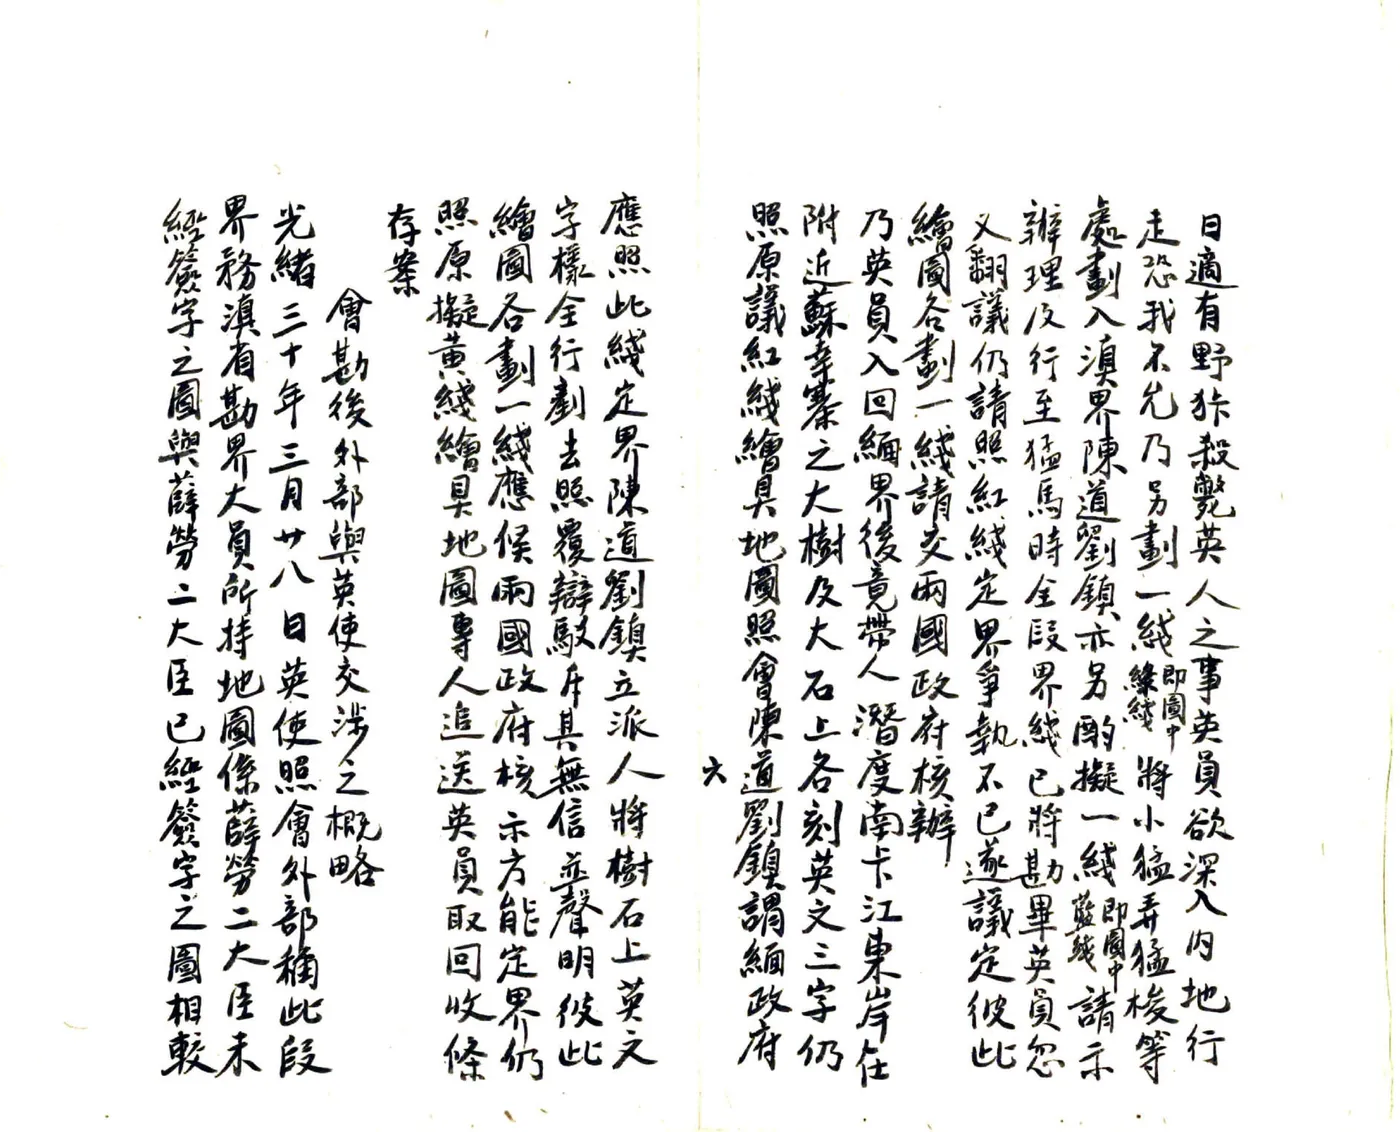 日適有野狇殺斃英人之事英員欲深入內地行
走恐我不允乃另劃一綫即圖中綠綫將小猛弄猛梭等
處劃入滇界陳道劉鎮亦另酌擬一綫即圖中藍綫請示
辦理及行至猛馬時全段界綫已將勘畢英員忽
又翻議仍請照紅綫定界爭執不已遂議定彼此
繪圖各劃一綫請交兩國政府核辦
乃英員入回緬界後竟帶人潛度南卡江東岸在
附近蘇寺寨之大樹及大石上各刻英文三字仍
照原議紅綫繪具地圖照會陳道劉鎮謂緬政府
六
應照此綫定界陳道劉鎮立派人將樹石上英文
字樣全行剷去照覆辯駁斥其無信並聲明彼此
繪圖各劃一綫應候兩國政府核示方能定界仍
照原擬黃綫繪具地圖專人追送英員取回收條
存案
會勘後外部與英使交涉之概略
光緒三十年三月廿八日英使照會外部稱此段
界務滇省勘界大員所持地圖係薛勞二大臣未
經簽字之圖與薛勞二大臣已經簽字之圖相較